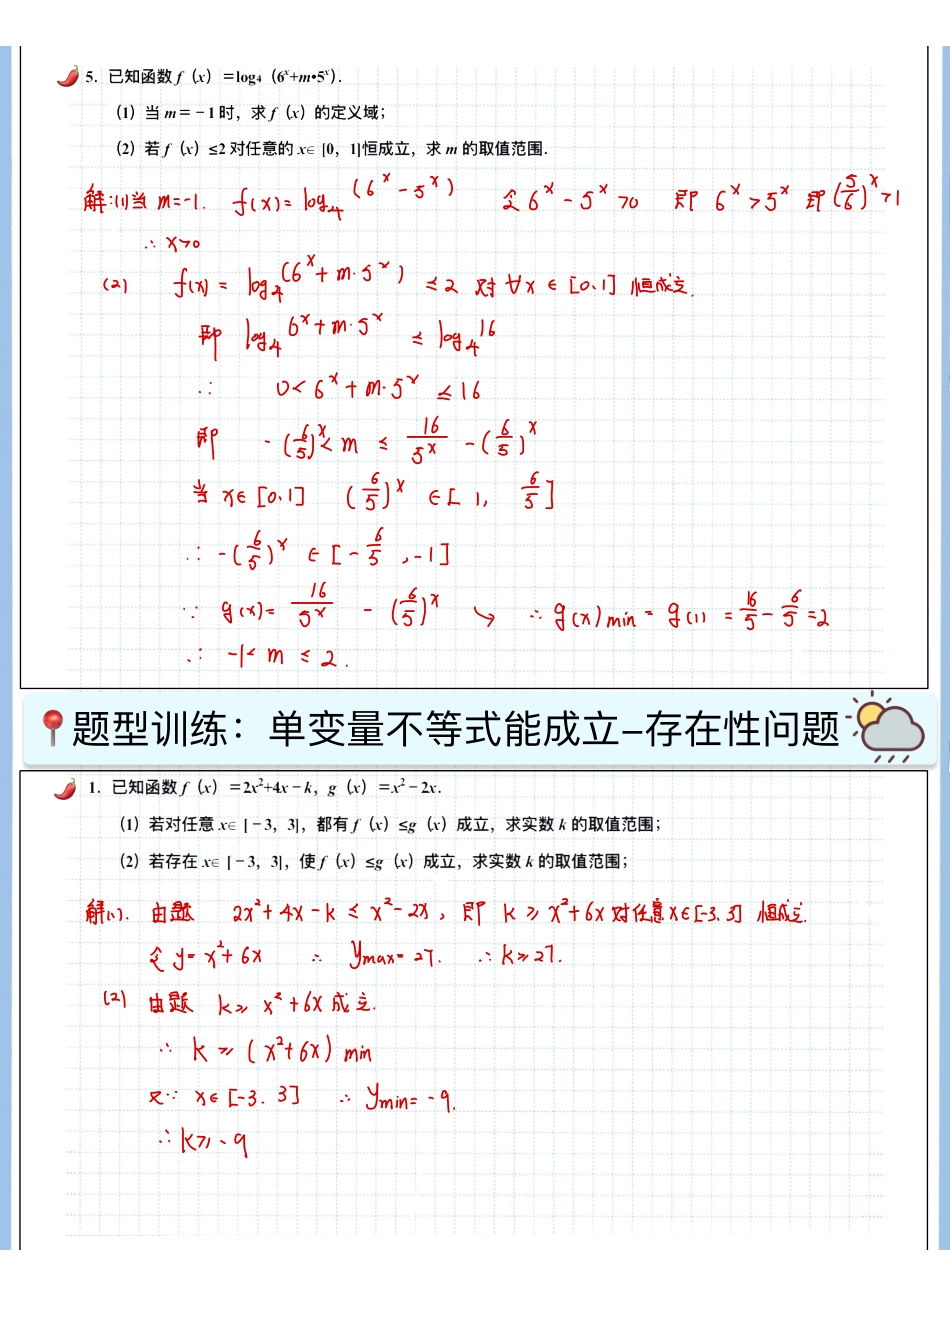 5．已知函数 f（x）＝log₄（6ˣ+m•5ˣ）．
（1）当 m＝﹣1 时，求 f（x）的定义域；
（2）若 f（x）≤2 对任意的 x∈［0，1]恒成立，求 m 的取值范围．
解:(1)当 m=-1. f(x)=log₄(6ˣ-5ˣ) 令 6ˣ-5ˣ>0 即 6ˣ>5ˣ 即(5/6)ˣ>1
∴ x>0
(2) f(x)= log₄(6ˣ+m·5ˣ) ≤2 对∀x∈[0,1] 恒成立.
即 log₄6ˣ+m·5ˣ ≤ log₄16
∴ 0<6ˣ+m·5ˣ≤16
即 -(6/5)ˣ< m ≤ 16/5ˣ -(6/5)ˣ
当 x∈[0,1] (6/5)ˣ ∈[1, 6/5]
∴ -(6/5)ˣ ∈[-6/5,-1]
∵ g(x)= 16/5ˣ -(6/5)ˣ ↘ ∴ g(x)min=g(1)=16/5-6/5=2
∴ -1< m ≤ 2.
题型训练：单变量不等式能成立–存在性问题
1．已知函数 f（x）＝2x²+4x﹣k，g（x）＝x²﹣2x．
（1）若对任意 x∈［﹣3，3]，都有 f（x）≤g（x）成立，求实数 k 的取值范围；
（2）若存在 x∈［﹣3，3]，使 f（x）≤g（x）成立，求实数 k 的取值范围；
解(1). 由题 2x²+4x-k≤x²-2x, 即 k≥x²+6x对任意x∈[-3.3] 恒成立.
令 y=x²+6x ∴ ymax=27. ∴k≥27.
(2) 由题 k≥ x²+6x 成立.
∴ k≥(x²+6x)min
又∵ x∈[-3.3] ∴ymin=-9.
∴k≥-9